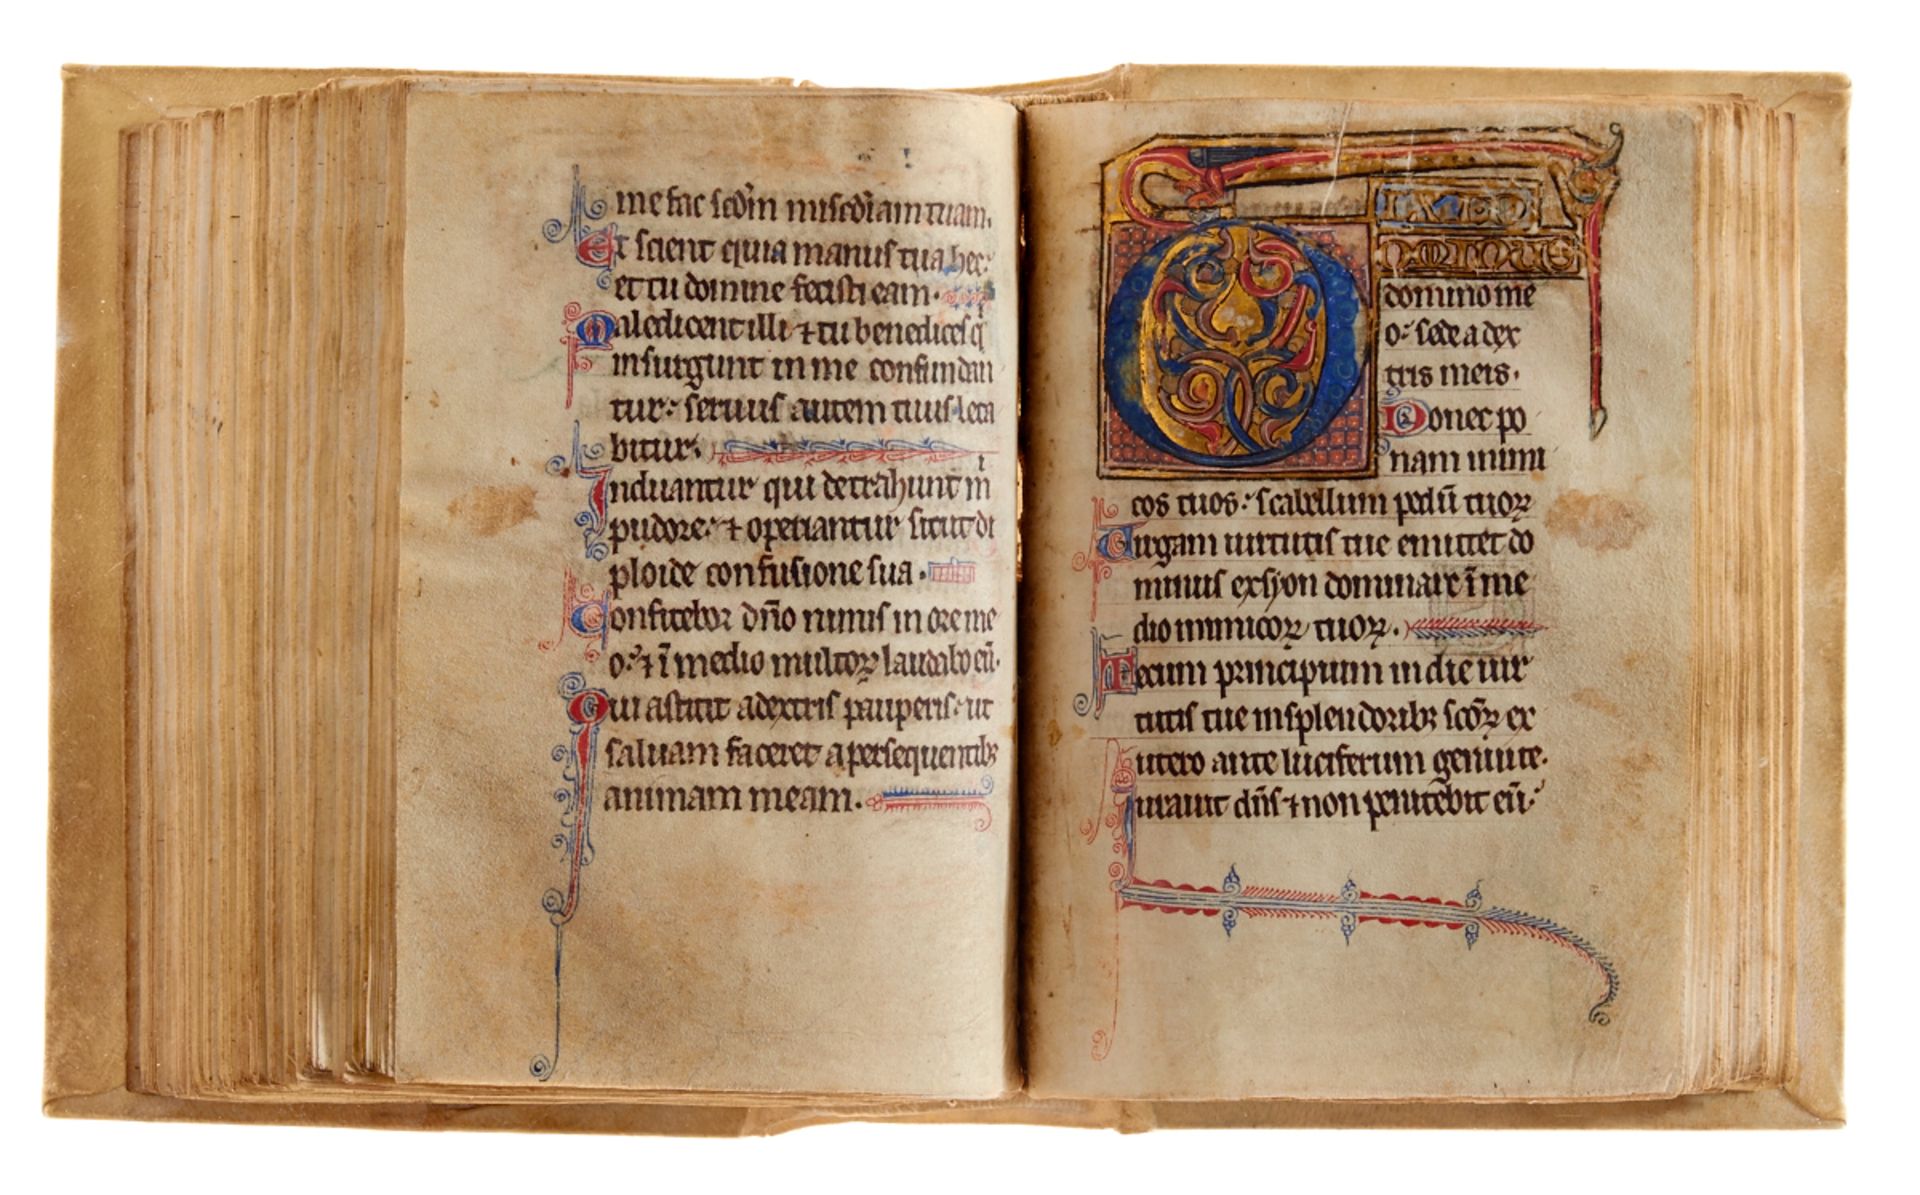 me fac scdm miscdiam tuam.
Et scient quia manus tua hec:
et tu domine fecisti eam.
Maledicent illi ⁊ tu benedices q̇
insurgunt in me confundan
tur: seruus autem tuus leta
bitur.
Induantur qui detrahunt m̍
pudore: ⁊ operiantur sicut di
ploide confusione sua.
Confitebor dn̄o nimis in ore me
o: ⁊ ī medio multoꝝ laudabo eū.
Qui astitit a dextris pauperis: ut
saluam faceret a persequentibꝫ
animam meam.
DIXIT DO
MINUS
domino me
o: sede a dex
tris meis.
Donec po
nam inimi
cos tuos: scabellum pedū tuoꝝ
Uirgam uirtutis tue emittet do
minus ex syon dominare ī me
dio inimicoꝝ tuoꝝ.
Tecum principium in die uir
tutis tue in splendoribꝫ sc̄oꝝ ex
utero ante luciferum genui te.
Iurauit dn̄s ⁊ non penitebit eū: